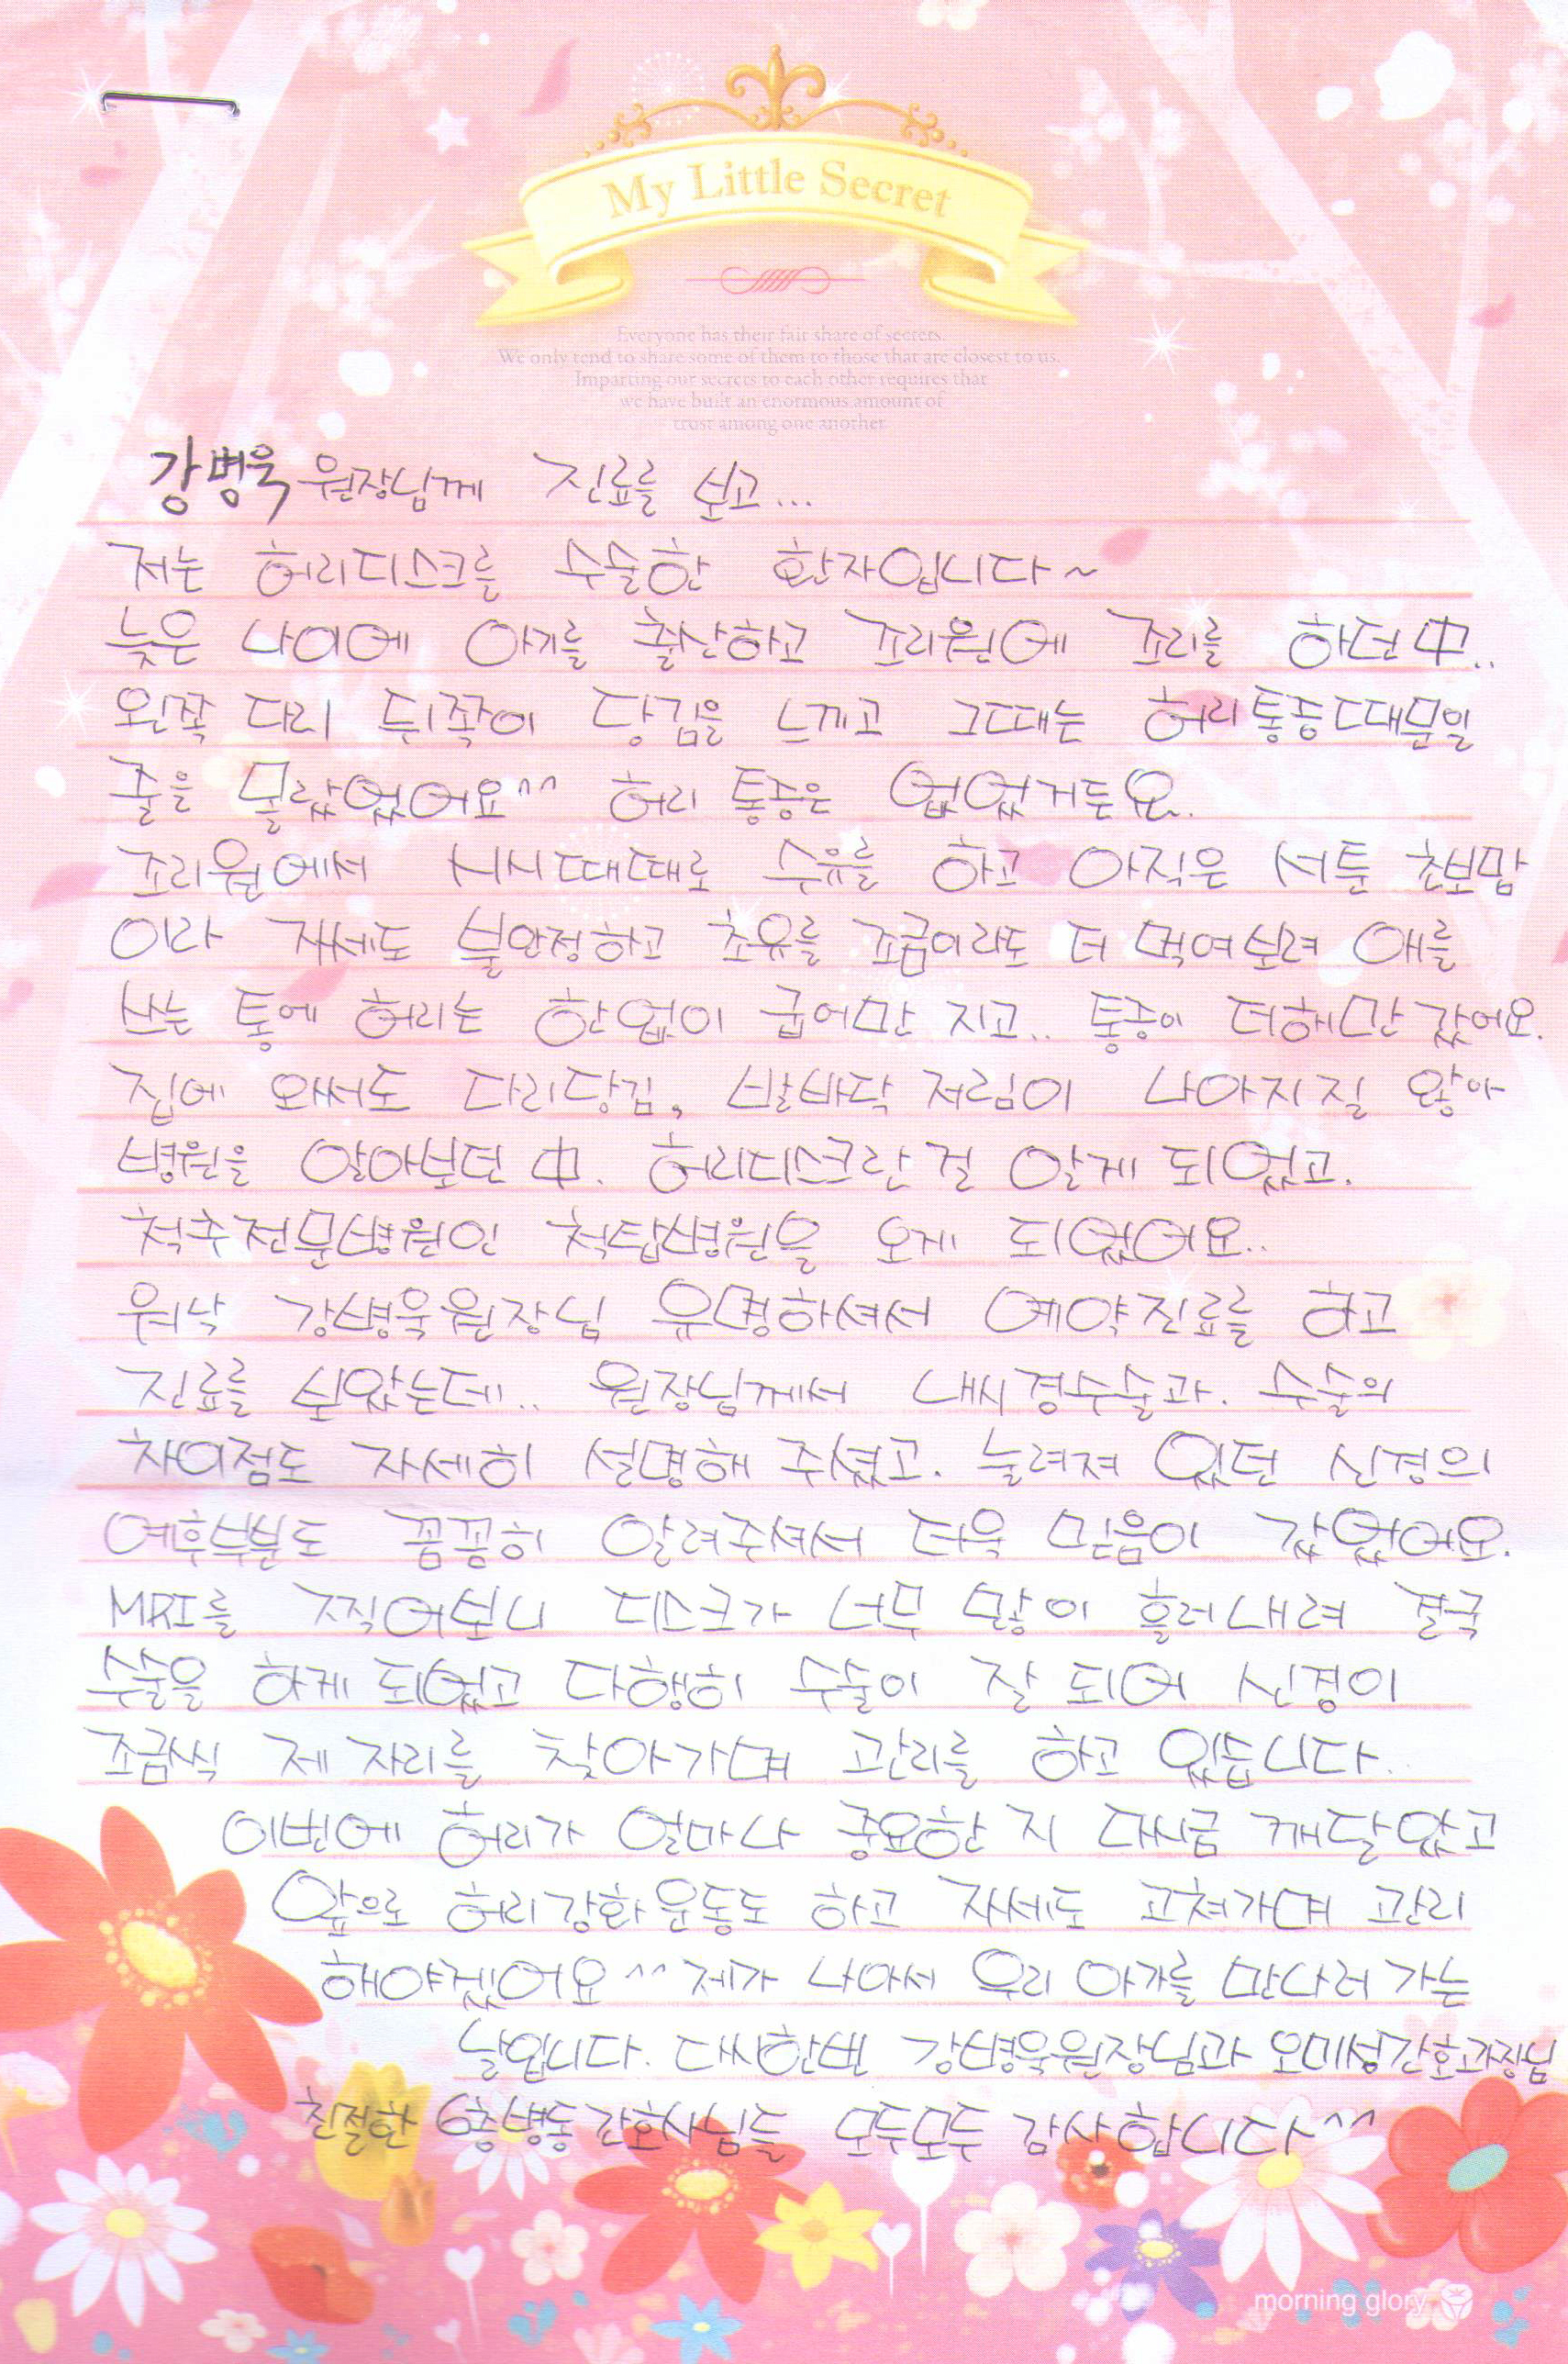 My Little Secret
Everyone has their fair share of secrets.
We only tend to share some of them to those that are closest to us.
Imparting our secrets to each other requires that
we have built an enormous amount of
trust among one another
강병욱 원장님께 진료를 보고...
저는 허리디스크를 수술한 환자입니다~
늦은 나이에 아기를 출산하고 조리원에 조리를 하던中..
왼쪽 다리 뒤쪽이 당김을 느끼고 그때는 허리통증때문일
줄을 몰랐었어요^^ 허리 통증은 없었거든요.
조리원에서 시시때때로 수유를 하고 아직은 서툰 초보맘
이라 자세도 불안정하고 초유를 조금이라도 더 먹여보려 애를
쓰는 통에 허리는 한없이 굽어만 지고.. 통증이 더해만 갔어요.
집에 와서도 다리당김, 발바닥 저림이 나아지질 않아
병원을 알아보던 中. 허리디스크란 걸 알게 되었고.
척추전문병원인 척탑병원을 오게 되었어요..
워낙 강병욱원장님 유명하셔서 예약진료를 하고
진료를 보았는데.. 원장님께서 내시경수술과. 수술의
차이점도 자세히 설명해 주셨고. 눌려져 있던 신경의
예후부분도 꼼꼼히 알려주셔서 더욱 믿음이 갔었어요.
MRI를 찍어보니 디스크가 너무 많이 흘러내려 결국
수술을 하게 되었고 다행히 수술이 잘 되어 신경이
조금씩 제 자리를 찾아가며 관리를 하고 있습니다..
이번에 허리가 얼마나 중요한 지 다시금 깨달았고
앞으로 허리강화운동도 하고 자세도 고쳐가며 관리
해야겠어요^^ 제가 나아서 우리 아가를 만나러 가는
날입니다. 다시한번 강병욱원장님과 오미성간호과장님
친절한 6층병동 간호사님들 모두모두 감사합니다^^
morning glory